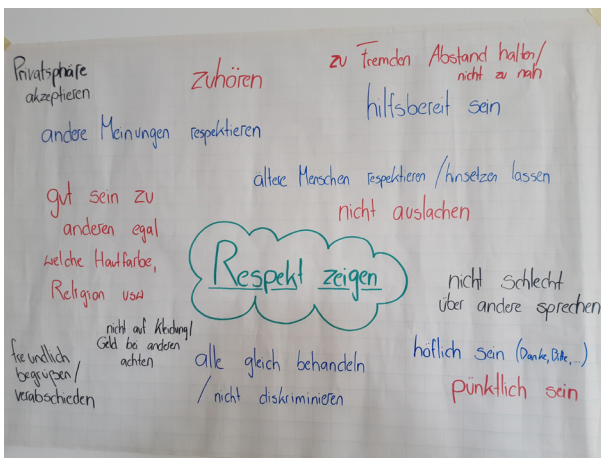 Privatsphäre
akzeptieren
zuhören
zu Fremden Abstand halten/
nicht zu nah
hilfsbereit sein
andere Meinungen respektieren
ältere Menschen respektieren / hinsetzen lassen
nicht auslachen
gut sein zu
anderen egal
welche Hautfarbe,
Religion usw
Respekt zeigen
nicht schlecht
über andere sprechen
nicht auf Kleidung/
Geld bei anderen
achten
freundlich
begrüßen/
verabschieden
alle gleich behandeln
/ nicht diskriminieren
höflich sein (Danke, Bitte, ...)
pünktlich sein